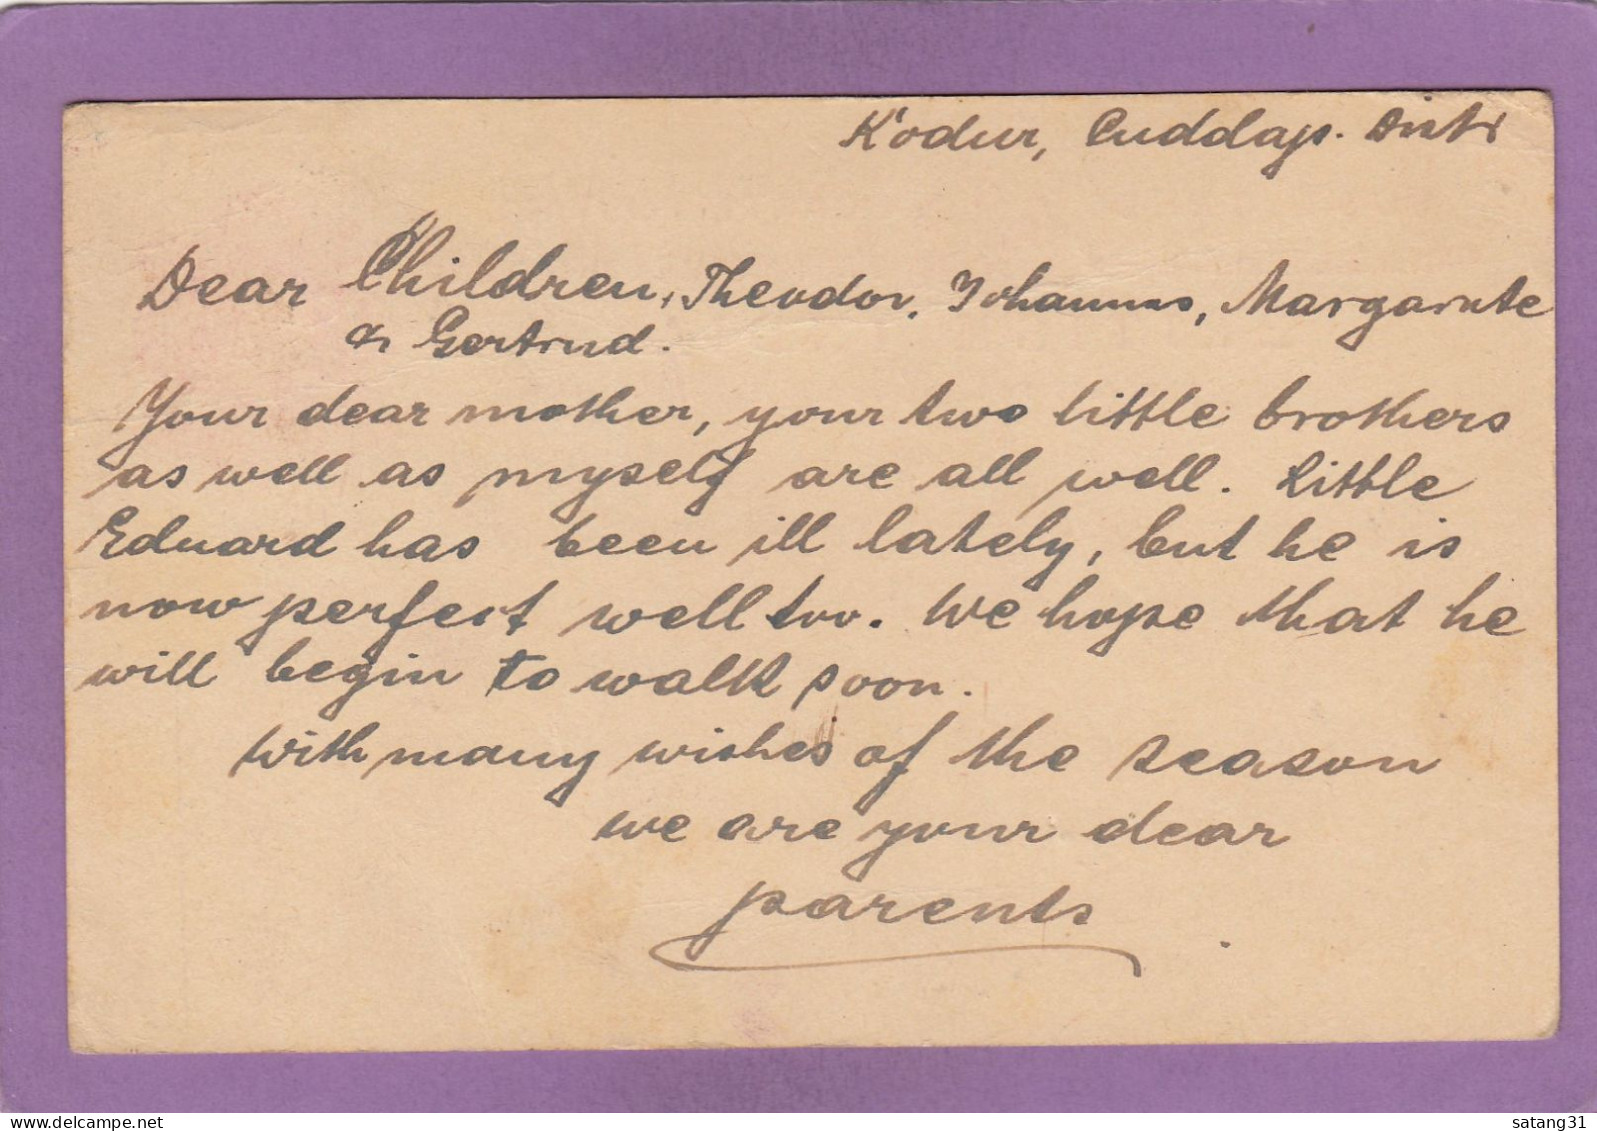 K'odur, Cuddap. Distr
Dear Children, Theodor, Johannes, Margarete
& Gertrud.
Your dear mother, your two little brothers
as well as myself are all well. Little
Eduard has been ill lately, but he is
now perfect well too. We hope that he
will begin to walk soon.
With many wishes of the season
we are your dear
parents
satang31